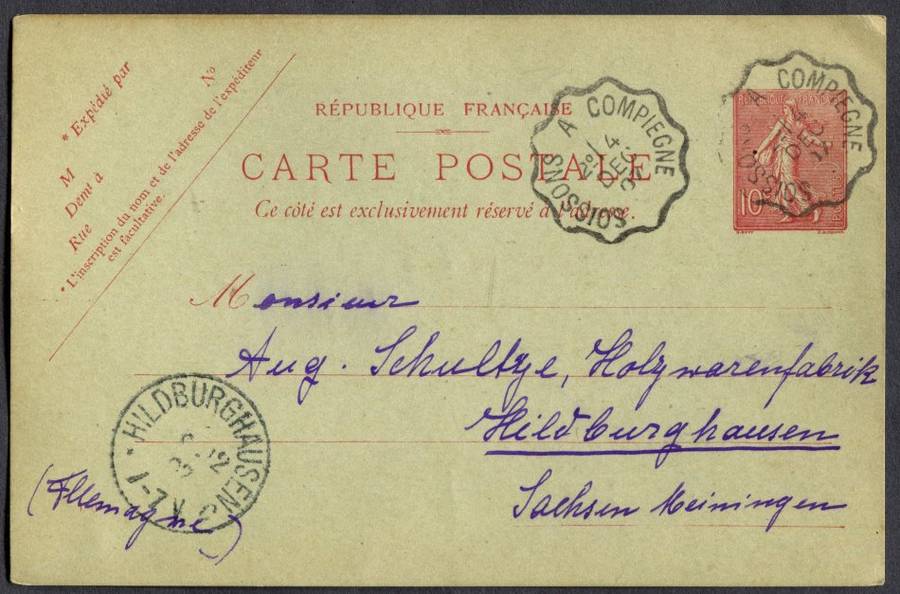 * Expédié par
No
M
Demt à
Rue
* L'inscription du nom et de l'adresse de l'expéditeur
est facultative.
RÉPUBLIQUE FRANÇAISE
CARTE POSTALE
Ce côté est exclusivement réservé à l'adresse.
SOISSONS A COMPIEGNE
14
DEC
SOISSONS A COMPIEGNE
14
DEC
RÉPUBLIQUE FRANÇAISE
10
Monsieur
Aug. Schultze, Holzwarenfabrik
Hildburghausen
Sachsen Meiningen
(Allemagne)
HILDBURGHAUSEN
12
1-7